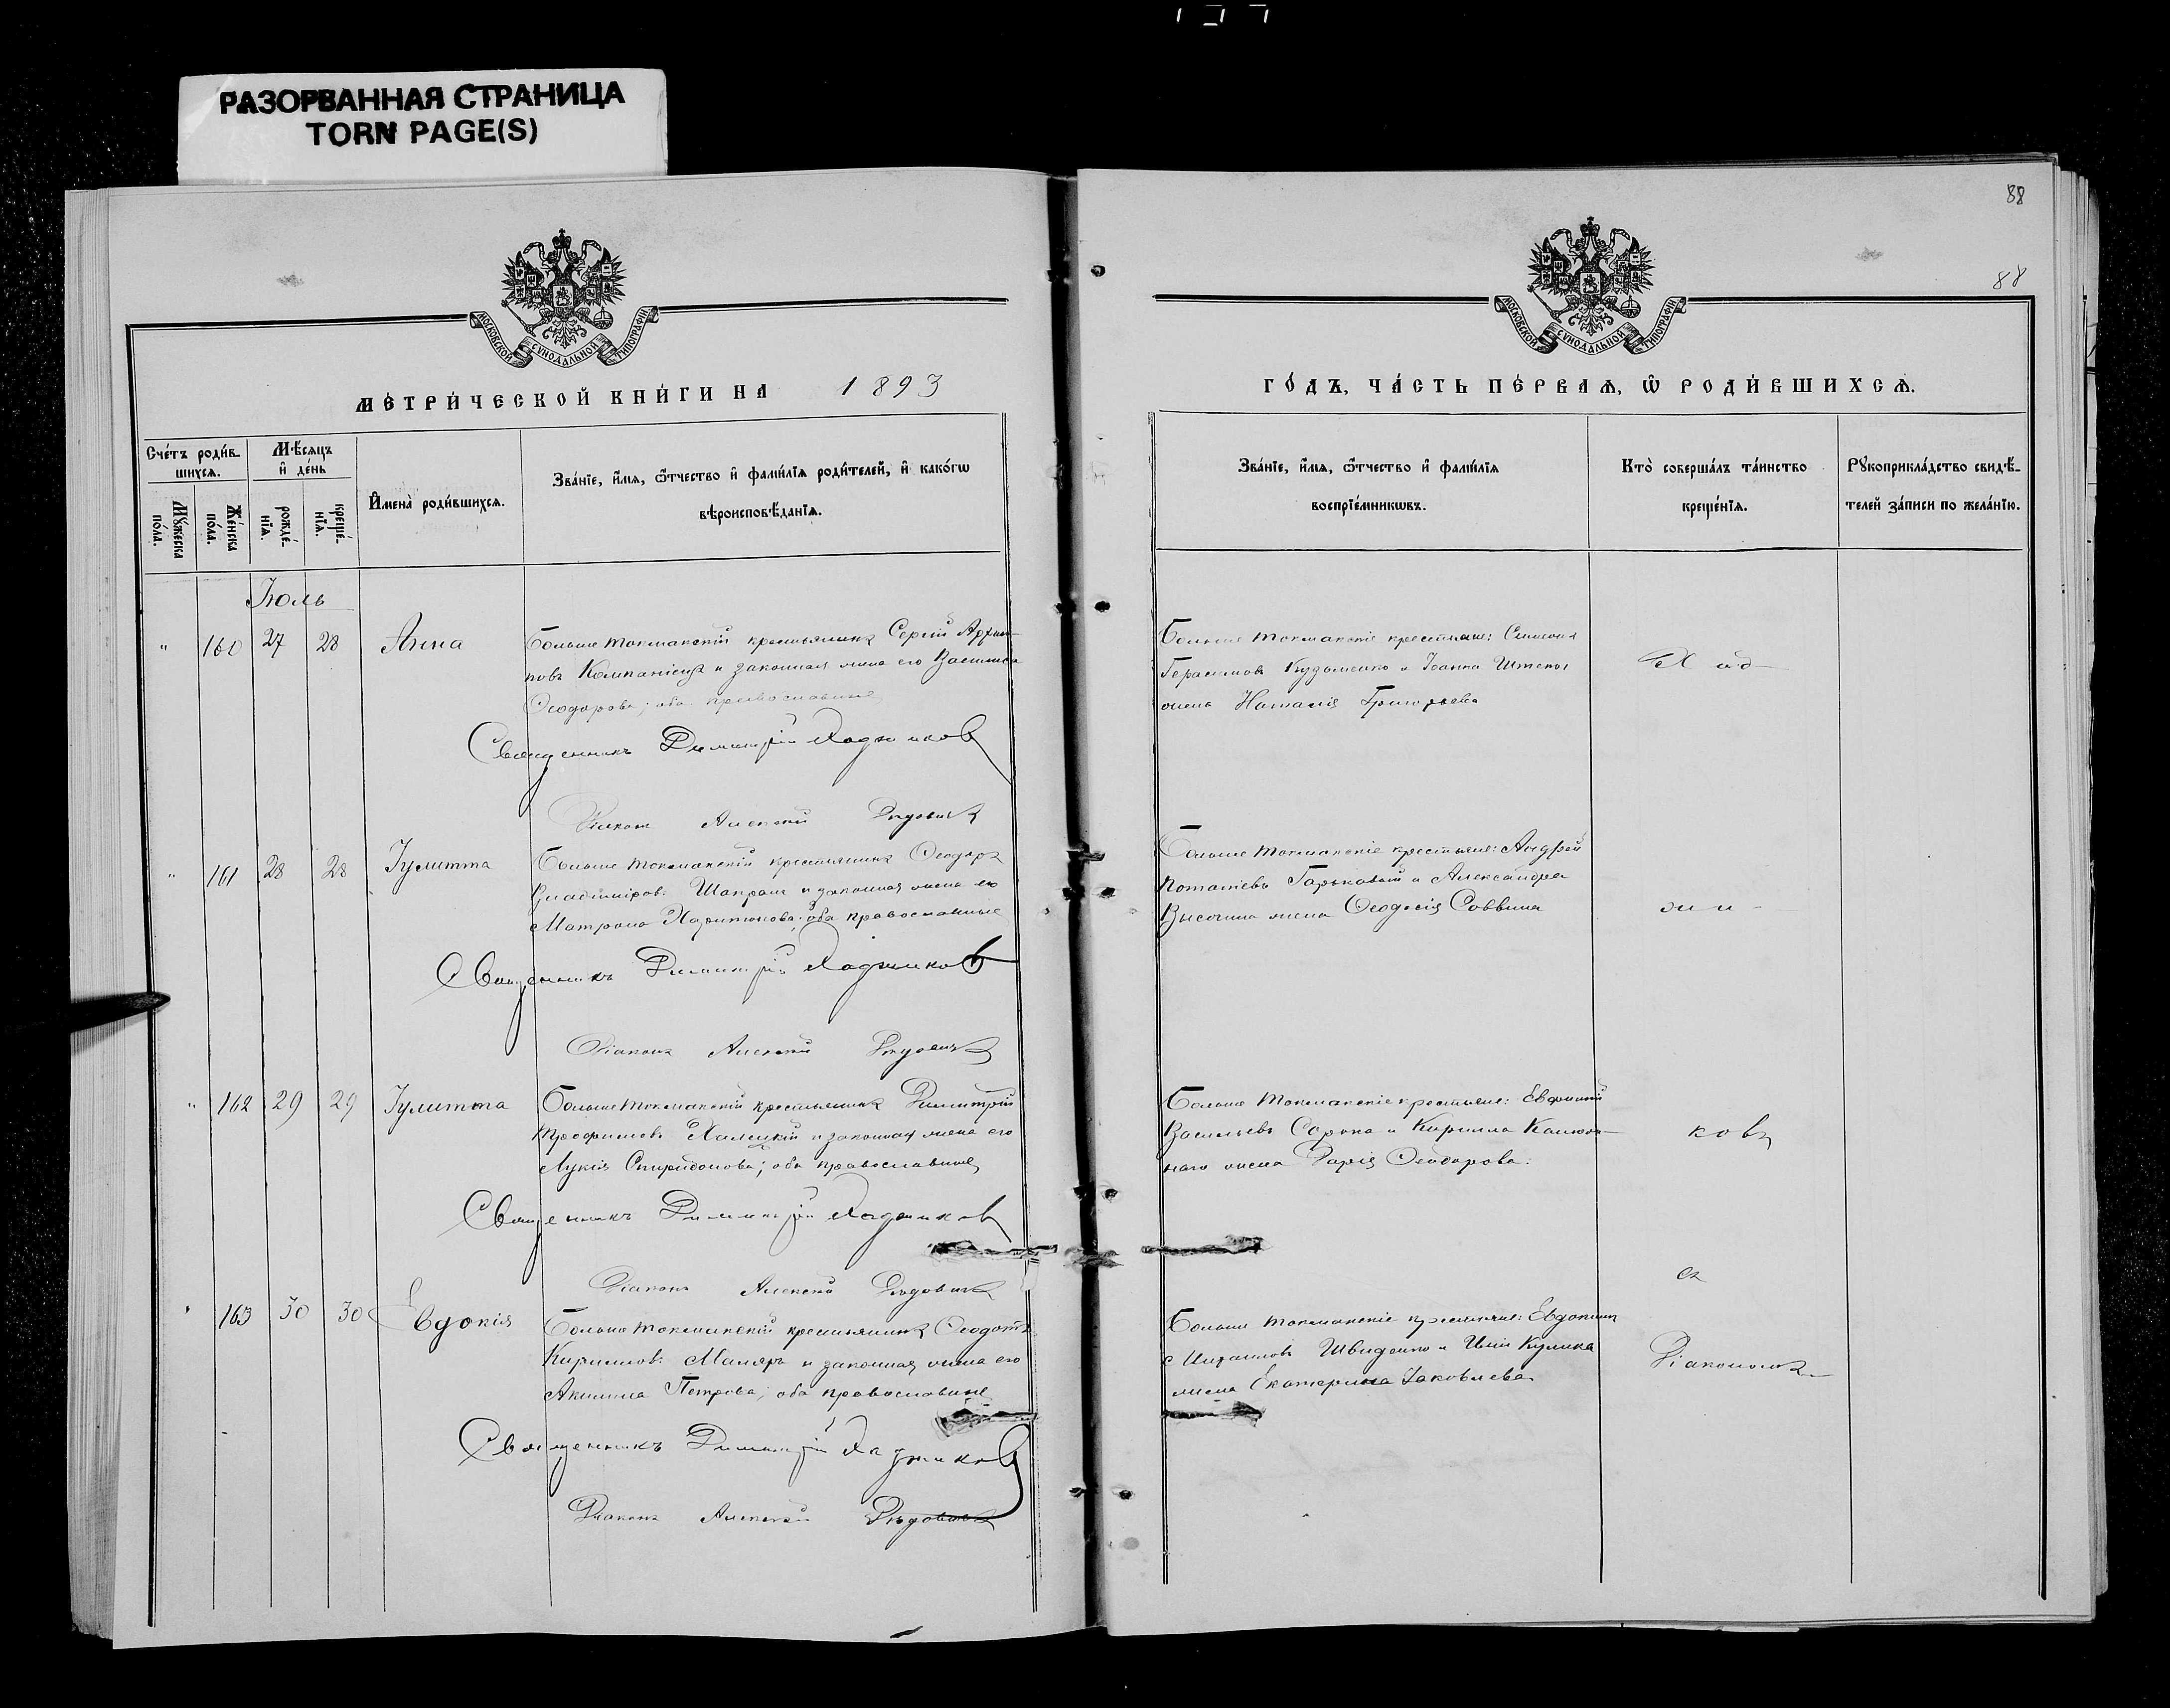 РАЗОРВАННАЯ СТРАНИЦА
TORN PAGE(S)
88
88
МОСКОВСКОЙ СѴНОДАЛЬНОЙ ТИПОГРАФІИ
МЕТРИ́ЧЕСКОЙ КНИ́ГИ НА 1893
Сче́тъ роди́в-
шихся.
Мѣ́сяцъ
и҆ де́нь
Мꙋ́жеска
по́ла.
Же́нска
по́ла.
рожде́-
нїѧ.
креще́-
нїѧ.
И҆мена̀ роди́вшихсѧ.
Зва́нїе, и҆́мѧ, ѻ҆́тчество и҆ фами́лїѧ роди́телей, и҆ како́гѡ
вѣроисповѣ́данїѧ.
Іюль
" 160 27 28 Анна
Больше Токмакскій крестьянинъ Сергій Архип-
повъ Компаніецъ и законная жена его Василиса
Ѳеодорова; оба православные
Священникъ Димитрій Хаджиковъ
Діаконъ Алексій
" 161 28 28 Іулитта
Больше Токмакскій крестьянинъ Ѳеодоръ
Владиміровъ Шапранъ и законная жена его
Матрона Харитонова; оба православные
Священникъ Димитрій Хаджиковъ
Діаконъ Алексій
" 162 29 29 Іулитта
Больше Токмакскій крестьянинъ Димитрій
Трофимовъ Халецкій и законная жена его
Лукія Спиридонова; оба православные
Священникъ Димитрій Хаджиковъ
Діаконъ Алексій
" 163 30 30 Евдокія
Больше Токмакскій крестьянинъ Ѳеодотъ
Кирилловъ Маляръ и законная жена его
Акилина Петрова; оба православные
Священникъ Димитрій Хаджиковъ
Діаконъ Алексій
МОСКОВСКОЙ СѴНОДАЛЬНОЙ ТИПОГРАФІИ
ГО́ДЪ, ЧА́СТЬ ПЕ́РВАѦ, Ѡ҆ РОДИ́ВШИХСѦ.
Зва́нїе, и҆́мѧ, ѻ҆́тчество и҆ фами́лїѧ
воспрїе́мникѡвъ.
Кто̀ соверша́лъ та́инство
креще́нїѧ.
Рꙋкоприкла́дство свидѣ́-
телей за́писи по жела́нїю.
Больше Токмакскіе крестьяне: Симеонъ
Герасимовъ Кудоменко и Іоанна
жена Наталія Григорьева
Хад-
Больше Токмакскіе крестьяне: Андрей
Потапіевъ Гарькавый и Александра
Височина жена Ѳеодосія Саввина
жи-
Больше Токмакскіе крестьяне: Евфимій
Васильевъ Сорока и Кирилла Калюж-
наго жена Дарія Ѳеодорова.
ковъ
съ
Больше Токмакскіе крестьяне: Евдокимъ
Михаиловъ Швиденко и Иліи Кулика
жена Екатерина Іаковлева
Діакономъ